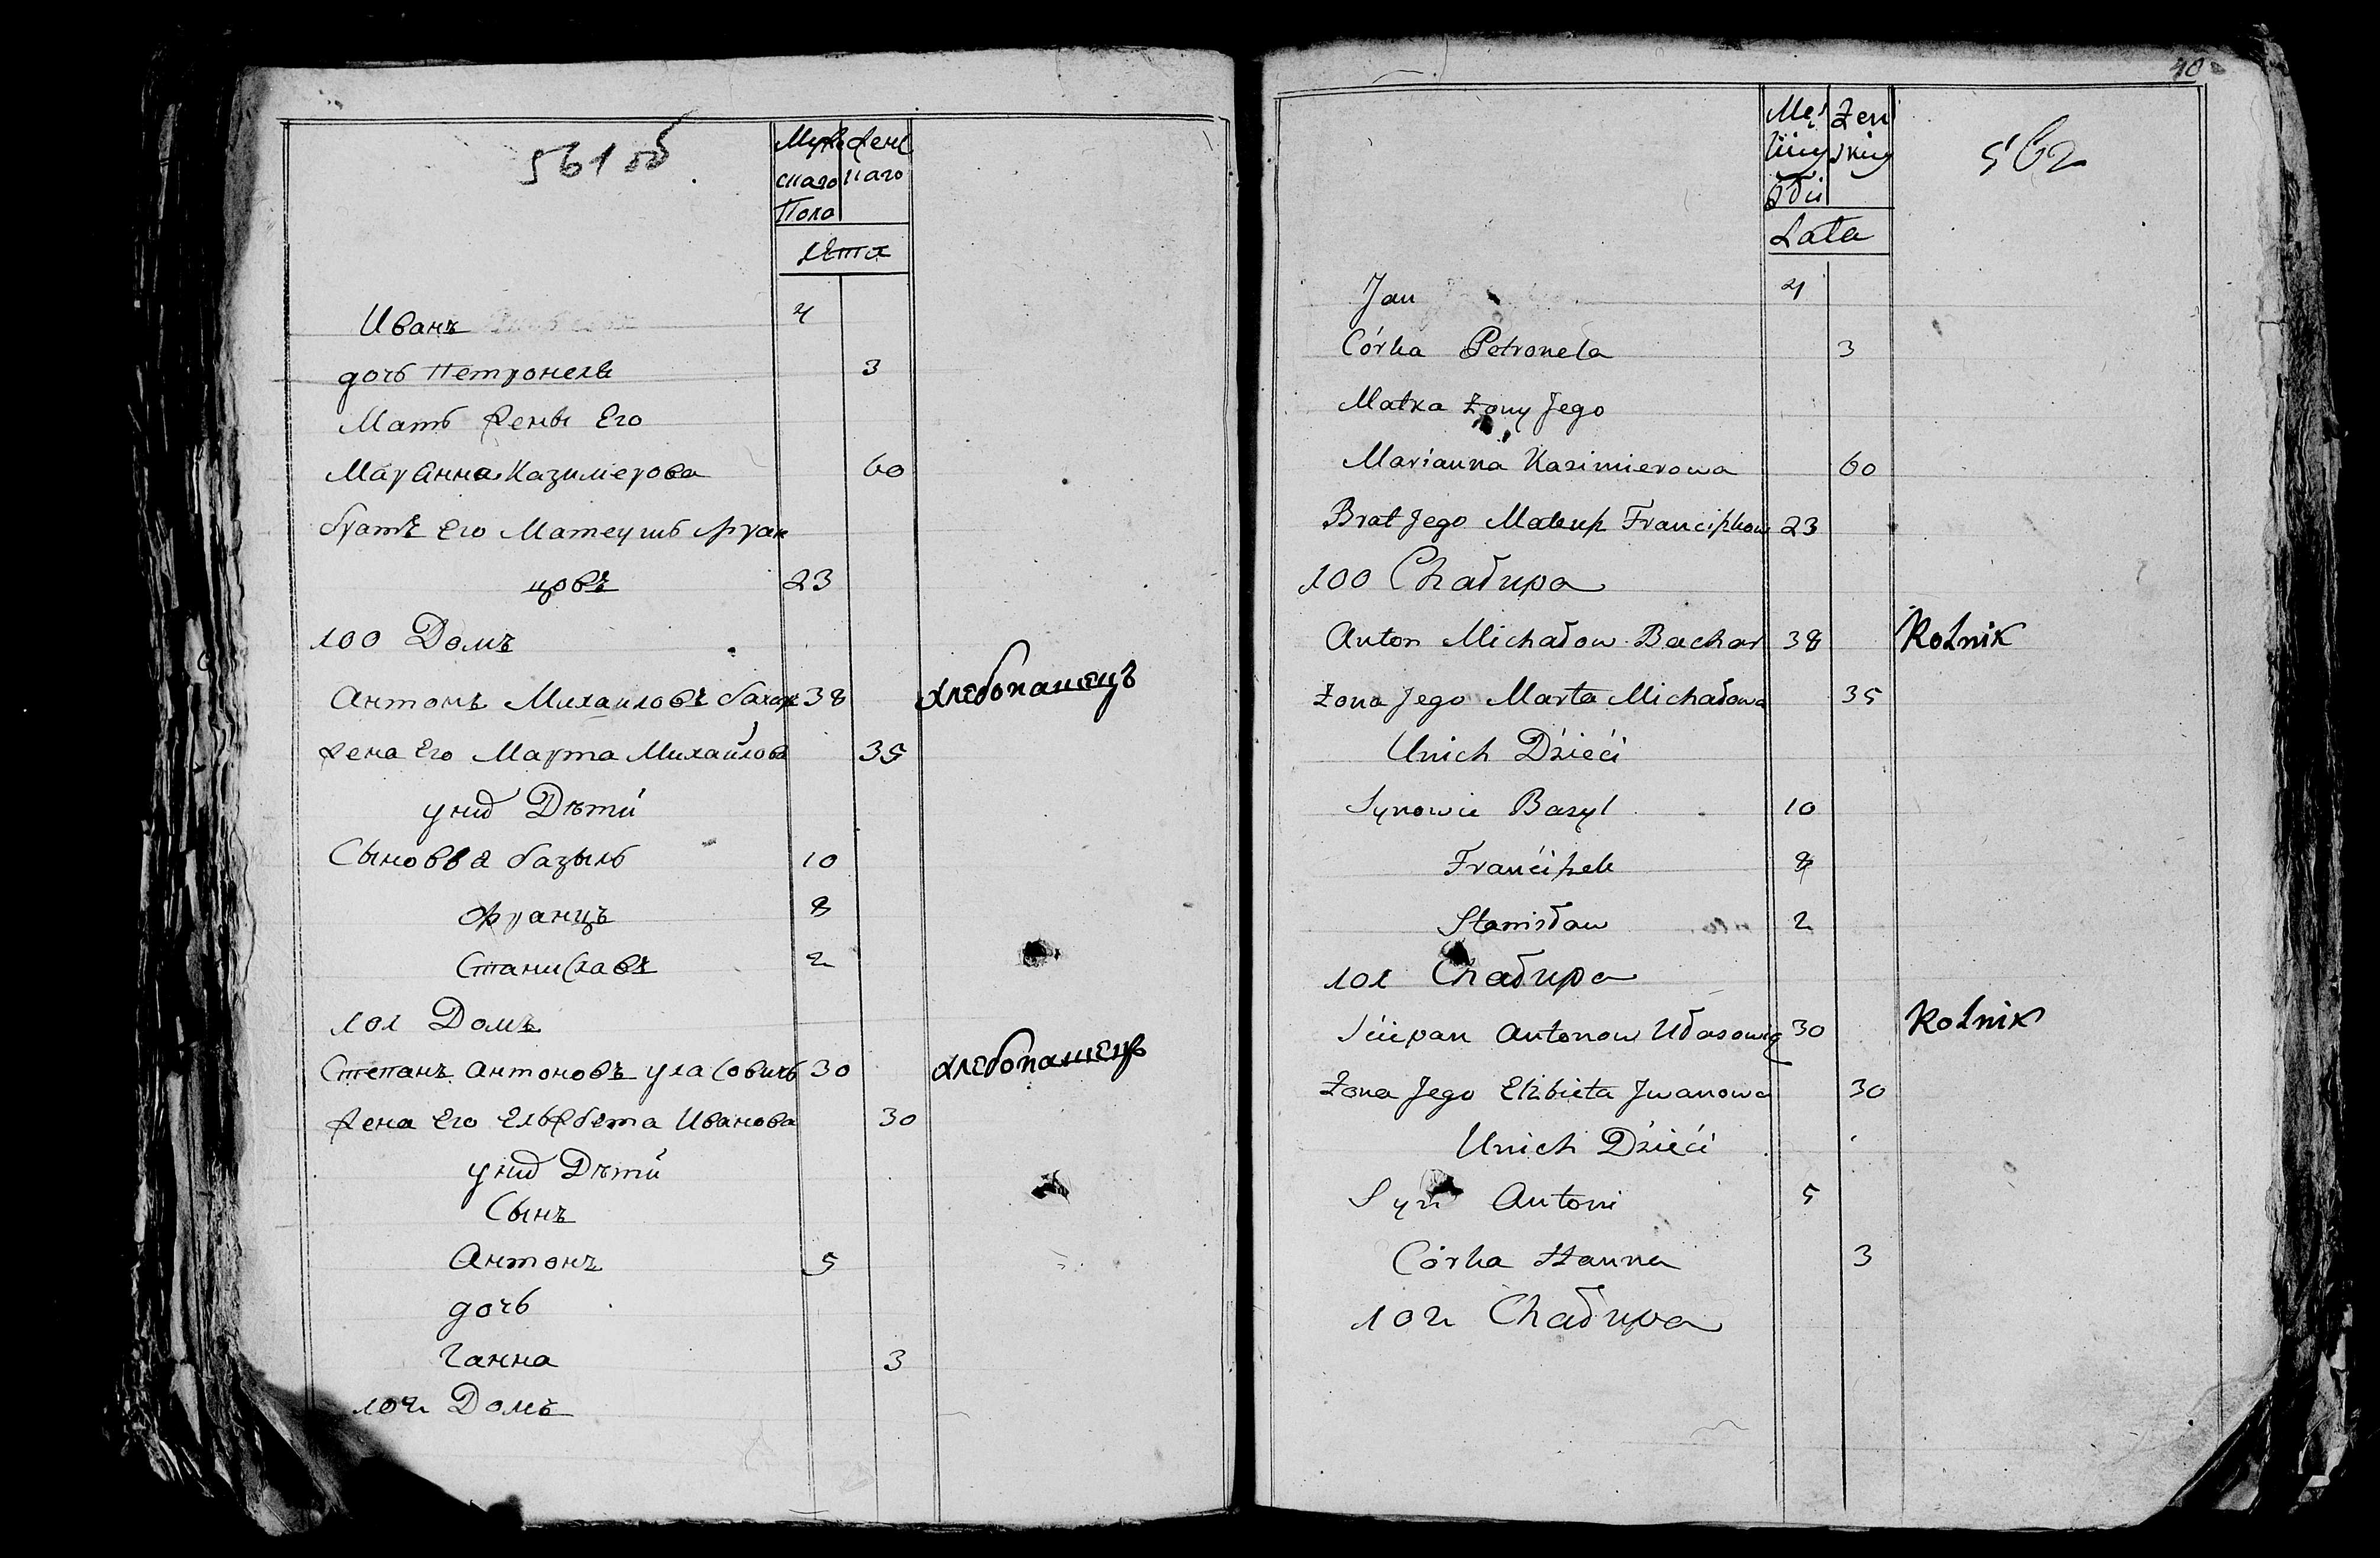 561 об
Муже Жен
скаго скаго
Пола
лѣта
Иванъ 4
дочь Петронеля 3
Мать Жены Его
Марiанна Казимерова 60
братъ Его Матеушъ Фран
цовъ 23
100 Домъ
Антонъ Михаиловъ бахаръ 38 хлебопашецъ
Жена Его Марта Михайлова 35
у них Дѣти
Сыновья базыль 10
Францъ 8
Станиславъ 2
101 Домъ
Степанъ Антоновъ уласовичъ 30 хлебопашецъ
Жена Его Ельжбета Иванова 30
у них Дѣти
Сынъ
Антонъ 5
дочь
Ганна 3
102 Домъ
40
562
Mę Żeń
skiey
płci
Lata
Jan 4
Córka Petronela 3
Matka Żony Jego
Marianna Kazimierowa 60
Brat Jego Mateusz Franciszkow 23
100 Chałupa
Anton Michałow Bachar 38 Rolnik
Żona Jego Marta Michałowa 35
Unich Dzieći
Synowie Bazyl 10
Franćiszek 8
Stanisław 2
101 Chałupa
Sćiepan Antonow Ułasowicz 30 Rolnik
Żona Jego Elżbieta Jwanowa 30
Unich Dzieći
Syn Antoni 5
Córka Hanna 3
102 Chałupa